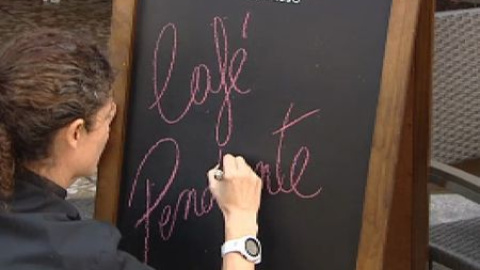 Café
Pendente